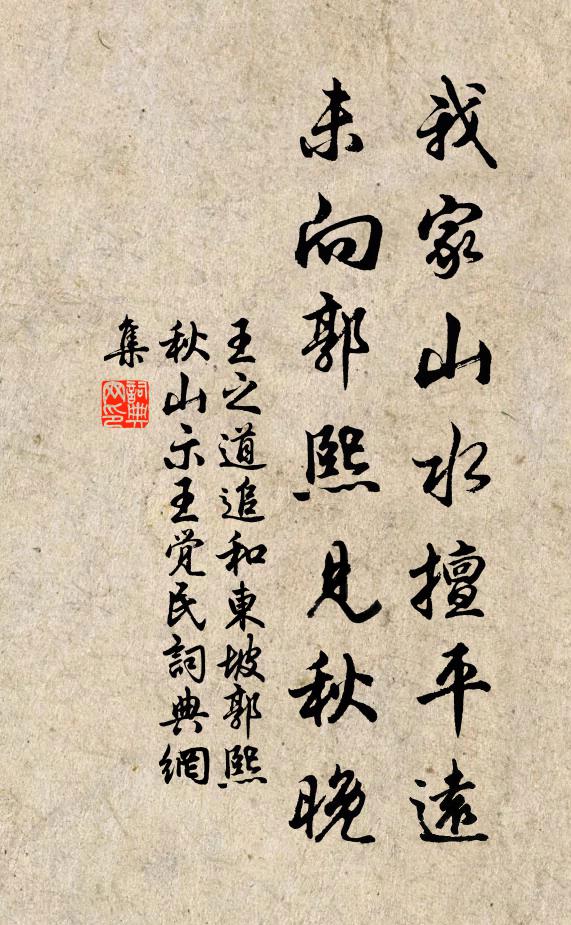 我家山水擅平遠
未向郭熙見秋晚
王之道追和東坡郭熙
秋山示王觉民詞典網
集
詞典网印